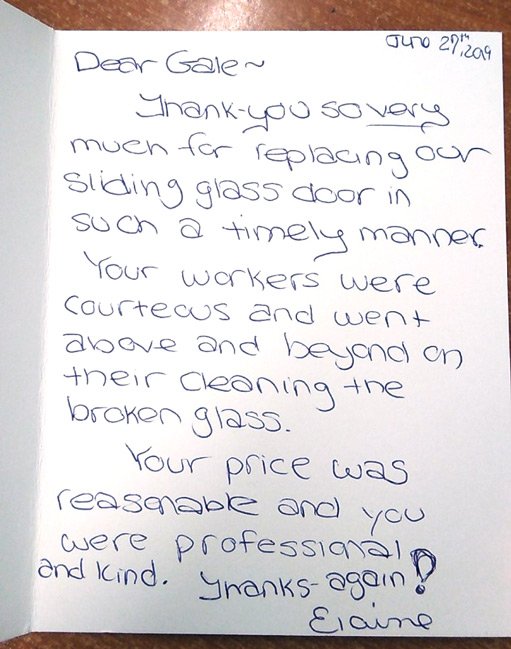 June 27th, 2019
Dear Gale~
Thank-you so very
much for replacing our
sliding glass door in
such a timely manner.
Your workers were
courteous and went
above and beyond on
their cleaning the
broken glass.
Your price was
reasonable and you
were professional
and kind. Thanks-again!
Elaine